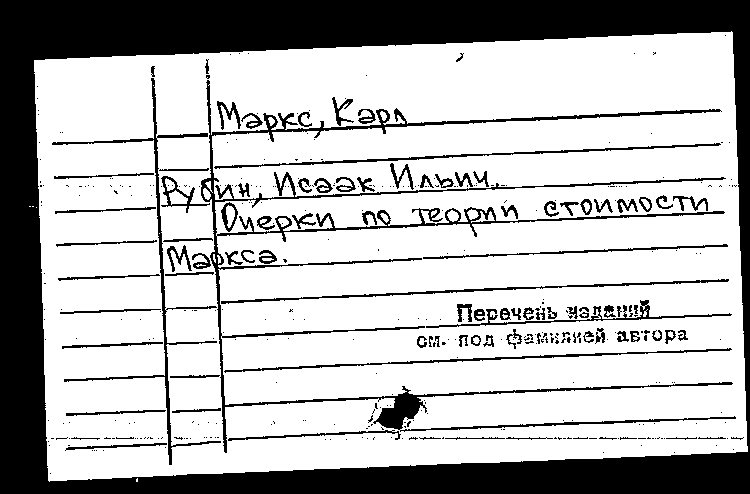 Маркс, Карл
Рубин, Исаак Ильич.
Очерки по теории стоимости
Маркса.
Перечень изданий
см. под фамилией автора